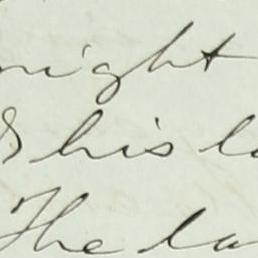 night
& his
The la